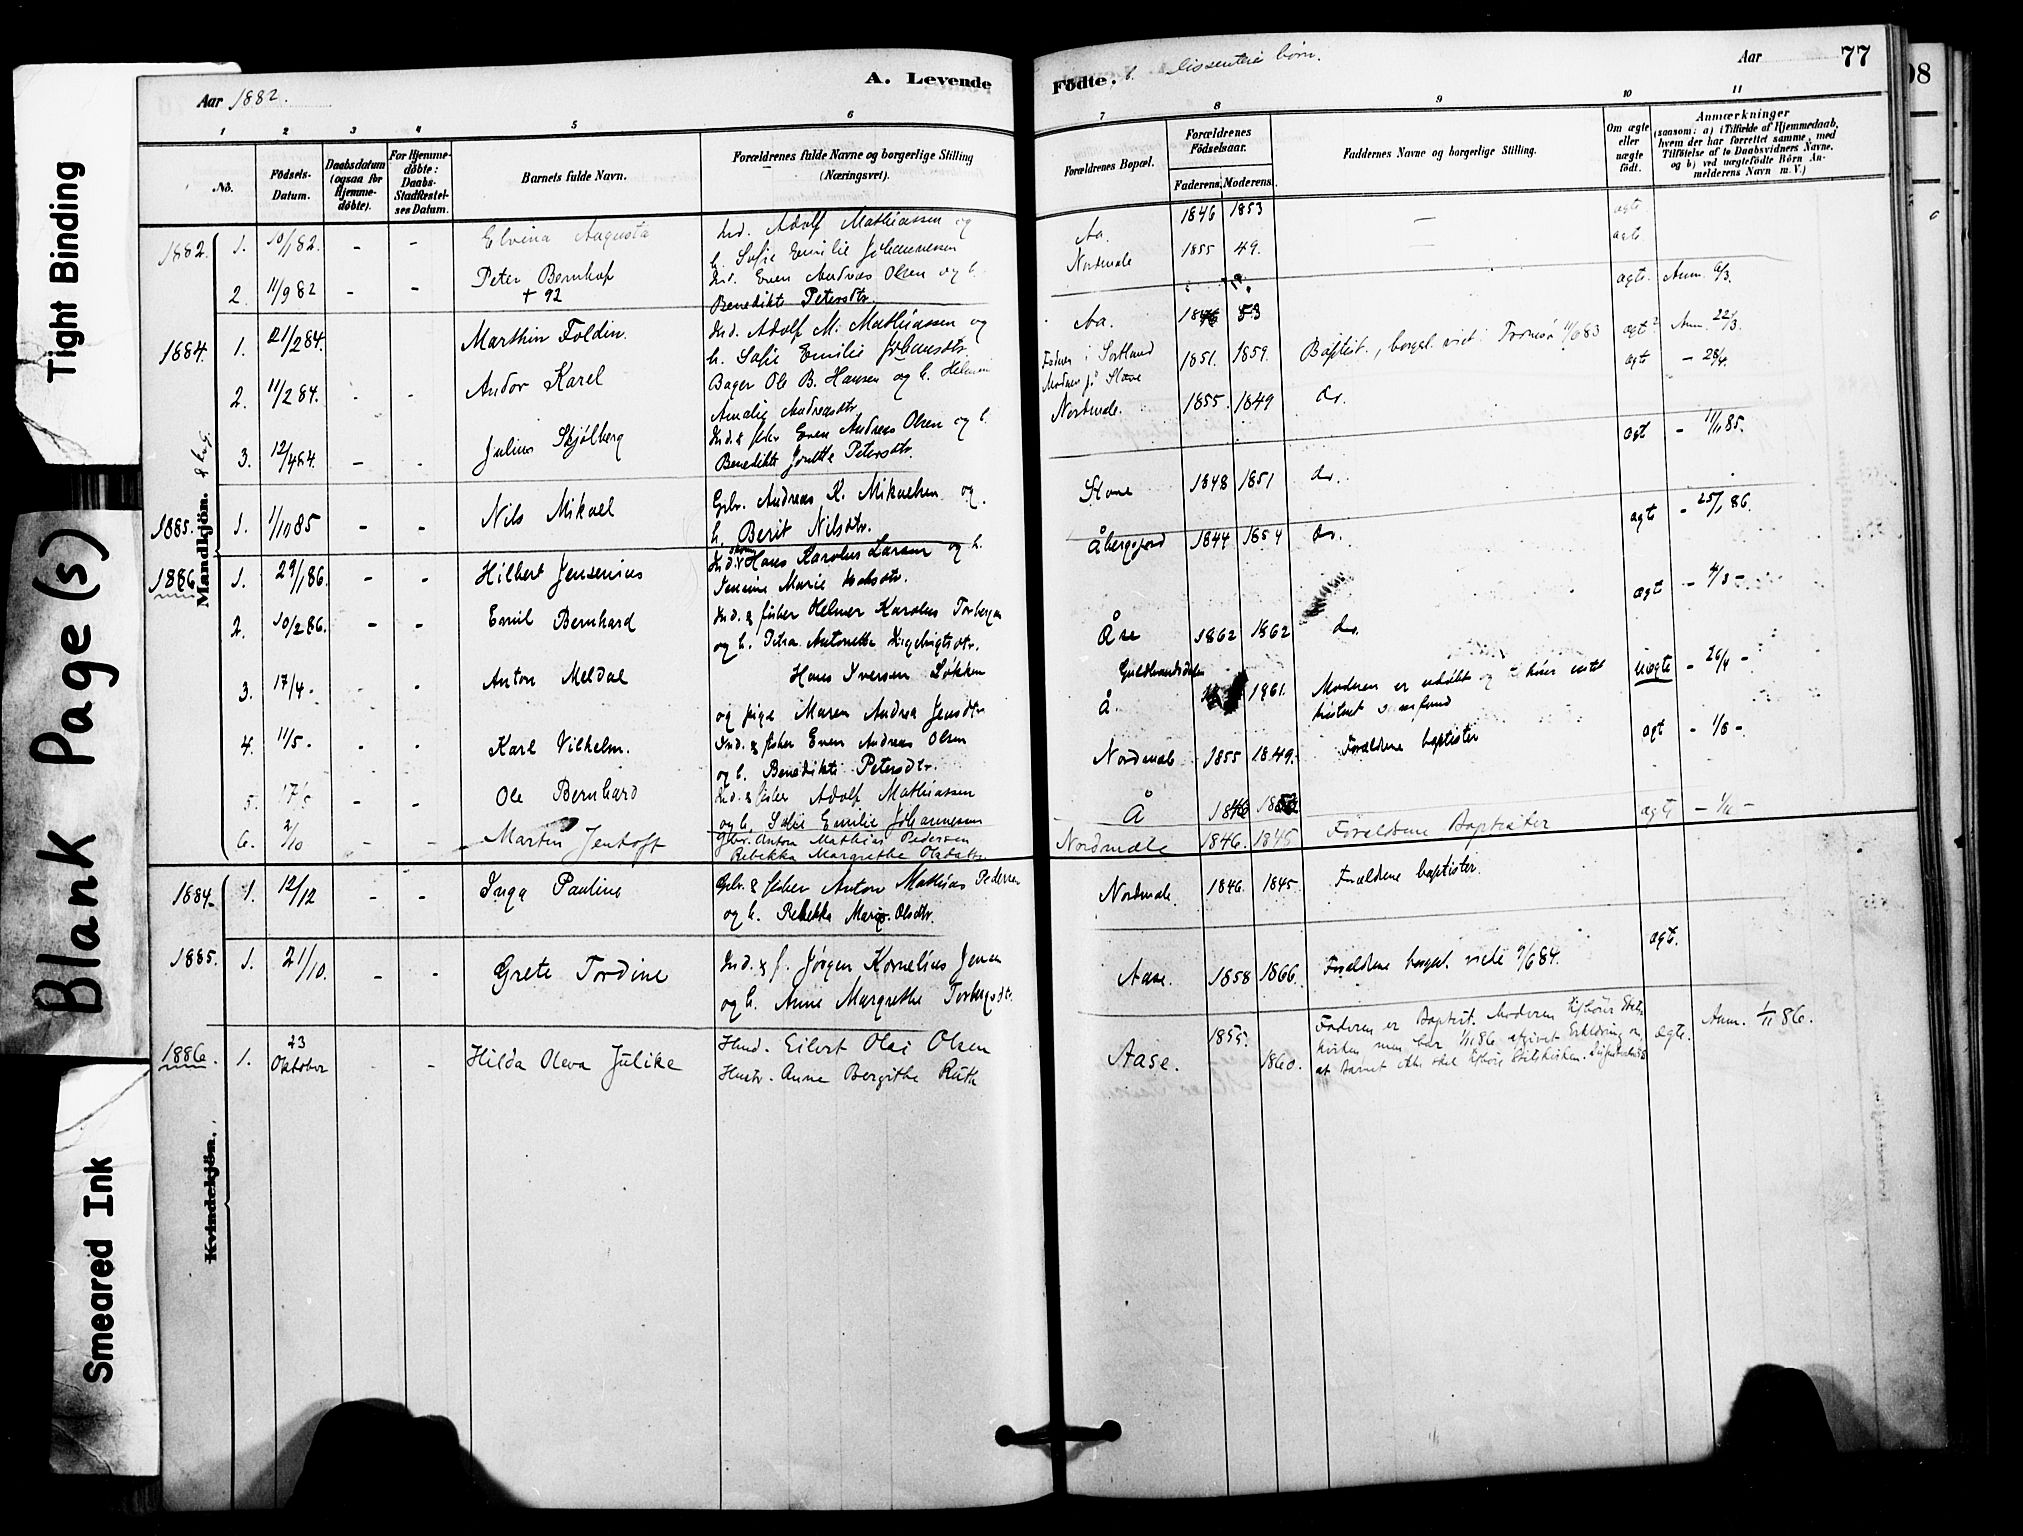 Tight Binding
Blank Page(s)
Smeared Ink
Aar 1882.
A. Levende
Födte. b. Dissenteres børn.
Aar
77
98
1 2 3 4 5 6
7 8 9 10 11
No.
Födsels-
Datum.
Daabsdatum
(ogsaa for
Hjemme-
döbte).
For Hjemme-
döbte:
Daabs-
Stadfæstel-
ses Datum.
Barnets fulde Navn.
Forældrenes fulde Navne og borgerlige Stilling
(Næringsvei).
Forældrenes Bopæl.
Forældrenes
Födselsaar.
Faderens. Moderens.
Faddernes Navne og borgerlige Stilling.
Om ægte
eller
uægte
födt.
Anmærkninger
(saasom: a) i Tilfælde af Hjemmedaab,
hvem der har forrettet samme, med
Tilföielse af to Daabsvidners Navne.
og b) ved uægtefödte Börn An-
melderens Navn m. V.)
Mandkjön.
1882. 1. 10/1 82. - - Elvina Augusta Ind. Adolf Mathiassen og
h. Sofie Emilie Johannesen
Aa. 1846 1853 — ægte
2. 11/9 82 - - Peter Bernhof Ind. Even Andreas Olsen og h.
+ 92 Benedikte Petersdtr.
Nordmele 1855 49. — ægte
ægte. Anm. 6/3.
1884. 1. 21/2 84. Marthin Foldin. Ind. Adolf M. Mathiassen og
h. Sofie Emilie Johansdtr.
Aa. 1846 53
2. 11/2 84. - - Andor Karel Bager Ole B. Hansen og h. Helmine
Amalie Andreasdtr.
Fader i Sortland
Moder på Stave
1851. 1859. Baptist., borgel. viet. Tromsø 11/6 83 ægte? Anm. 22/3.
3. 12/4 84. - - Julius Skjølberg Ind. & fisker Even Andreas Olsen og h.
Benedikte Petersdtr.
Nordmele. 1855. 1849 do. ægte - 28/4.
1885. 1. 1/11 85 - - Nils Mikael Gbr. Andreas K. Mikaelsen og
h. Berit Nilsdtr.
Stave 1848 1851 do. ægte - 11/11 85.
1886. 1. 29/1 86. - - Hilbert Jensenius Hans Karolus Larsen og h.
Marie
Åbergsjord 1844 1854 do. ægte - 25/1 86.
2. 10/2 86. - - Emil Bernhard Ind. & fisker Helmer Karolus Torbergsen
og h. Petra Antonette
Åse 1862 1862 do. ægte - 4/3 -
3. 17/4 - - - Anton Meldal Hans Iversen Løkken
og pige Maren Andrea Jensdtr.
Guldbrandsdalen
Å. 1861. Moderen er udøbt og
uægte - 26/4 -
4. 11/5 - - Karl Vilhelm. Ind. & fisker Even Andreas Olsen
og h. Benedikte Petersdtr.
Nordmele 1855 1849. Forældrene baptister ægt - 1/6 -
5. 17/5 - - Ole Bernhard Ind. & fisker Adolf Mathiassen
og h. Sofie Emilie Johannesen
Å 1846
6. 2/10 - - Martin Jentoft Gbr. Anton Mathias Pedersen
Rebekka Margrethe Olsdatter
Nordmele 1846. 1845 Forældrene Baptister ægte - 1/11 -
Kvindekjön.
1884. 1. 12/12 - - Inga Pauline Gbr. & fisker Anton Mathias Pedersen
og h. Rebekka Marg. Olsdtr.
Nordmele. 1846. 1845. Forældrene baptister.
1885. 1. 21/10. - - Grete Tordine Ind. & f. Jørgen Kornelius Jensen
og h. Anne Margrethe Torbergsdtr.
Aase. 1858 1866. Forældrene borgel. viede 9/6 84. ægte.
1886. 1. 23
Oktober - Hilda Oleva Julike Husd. Eilert Olai Olsen
Hustr. Anne Bergithe Ruth
Aase. 1855. 1860. Faderen er Baptist. Moderen tilhører Stats-
kirken men har 1/11 86 afgivet Erklæring om
at Barnet ikke skal tilhøre Statskirken.
ægte. Anm. 1/11 86.